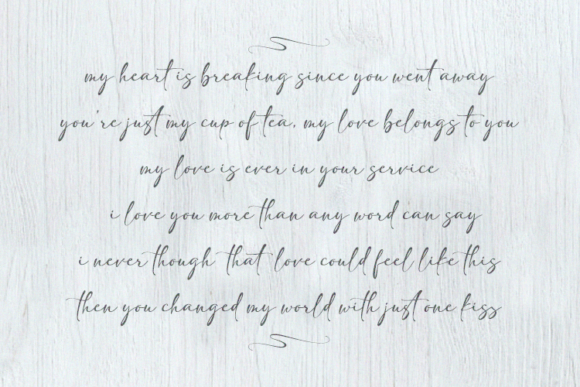 my heart is breaking since you went away
you're just my cup of tea. my love belongs to you
my love is ever in your service
i love you more than any word can say
i never though that love could feel like this
then you changed my world with just one kiss